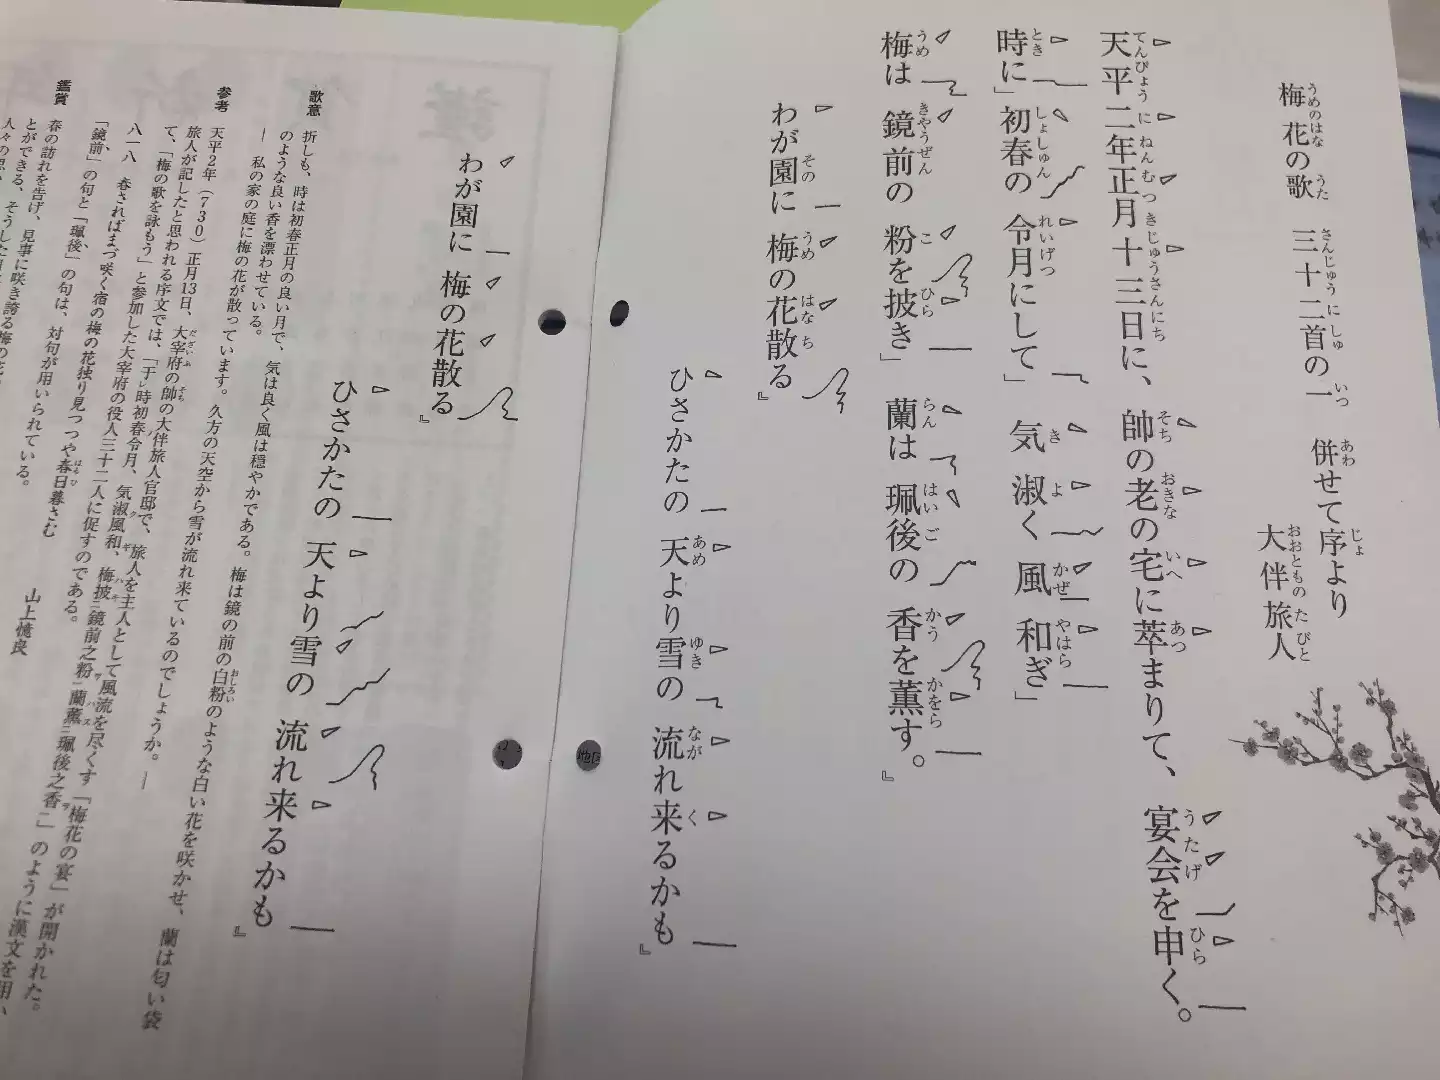 梅花の歌 三十二首の一 併せて序より
大伴旅人
天平二年正月十三日に、帥の老の宅に萃まりて、宴会を申く。
時に」初春の 令月にして」 気淑く 風和ぎ」
梅は 鏡前の 粉を披き」 蘭は 珮後の 香を薫す。』
わが園に 梅の花散る』
ひさかたの 天より雪の 流れ来るかも』
わが園に 梅の花散る』
ひさかたの 天より雪の 流れ来るかも』
歌意 折しも、時は初春正月の良い月で、気は良く風は穏やかである。梅は鏡の前の白粉のような白い花を咲かせ、蘭は匂い袋
のような良い香を漂わせている。
― 私の家の庭に梅の花が散っています。久方の天空から雪が流れ来ているのでしょうか。―
参考 天平2年(730)正月13日、大宰府の帥の大伴旅人官邸で、旅人を主人として風流を尽くす「梅花の宴」が開かれた。
旅人が記したと思われる序文では、「于時初春令月、気淑風和、梅披鏡前之粉、蘭薫珮後之香」のように漢文を用い、
て、「梅の歌を詠もう」と参加した大宰府の役人三十二人に促すのである。
八一八 春さればまづ咲く宿の梅の花独り見つつや春日暮さむ 山上憶良
「鏡前」の句と「珮後」の句は、対句が用いられている。
鑑賞 春の訪れを告げ、見事に咲き誇る梅の花
とができる、そうした
人々の思い